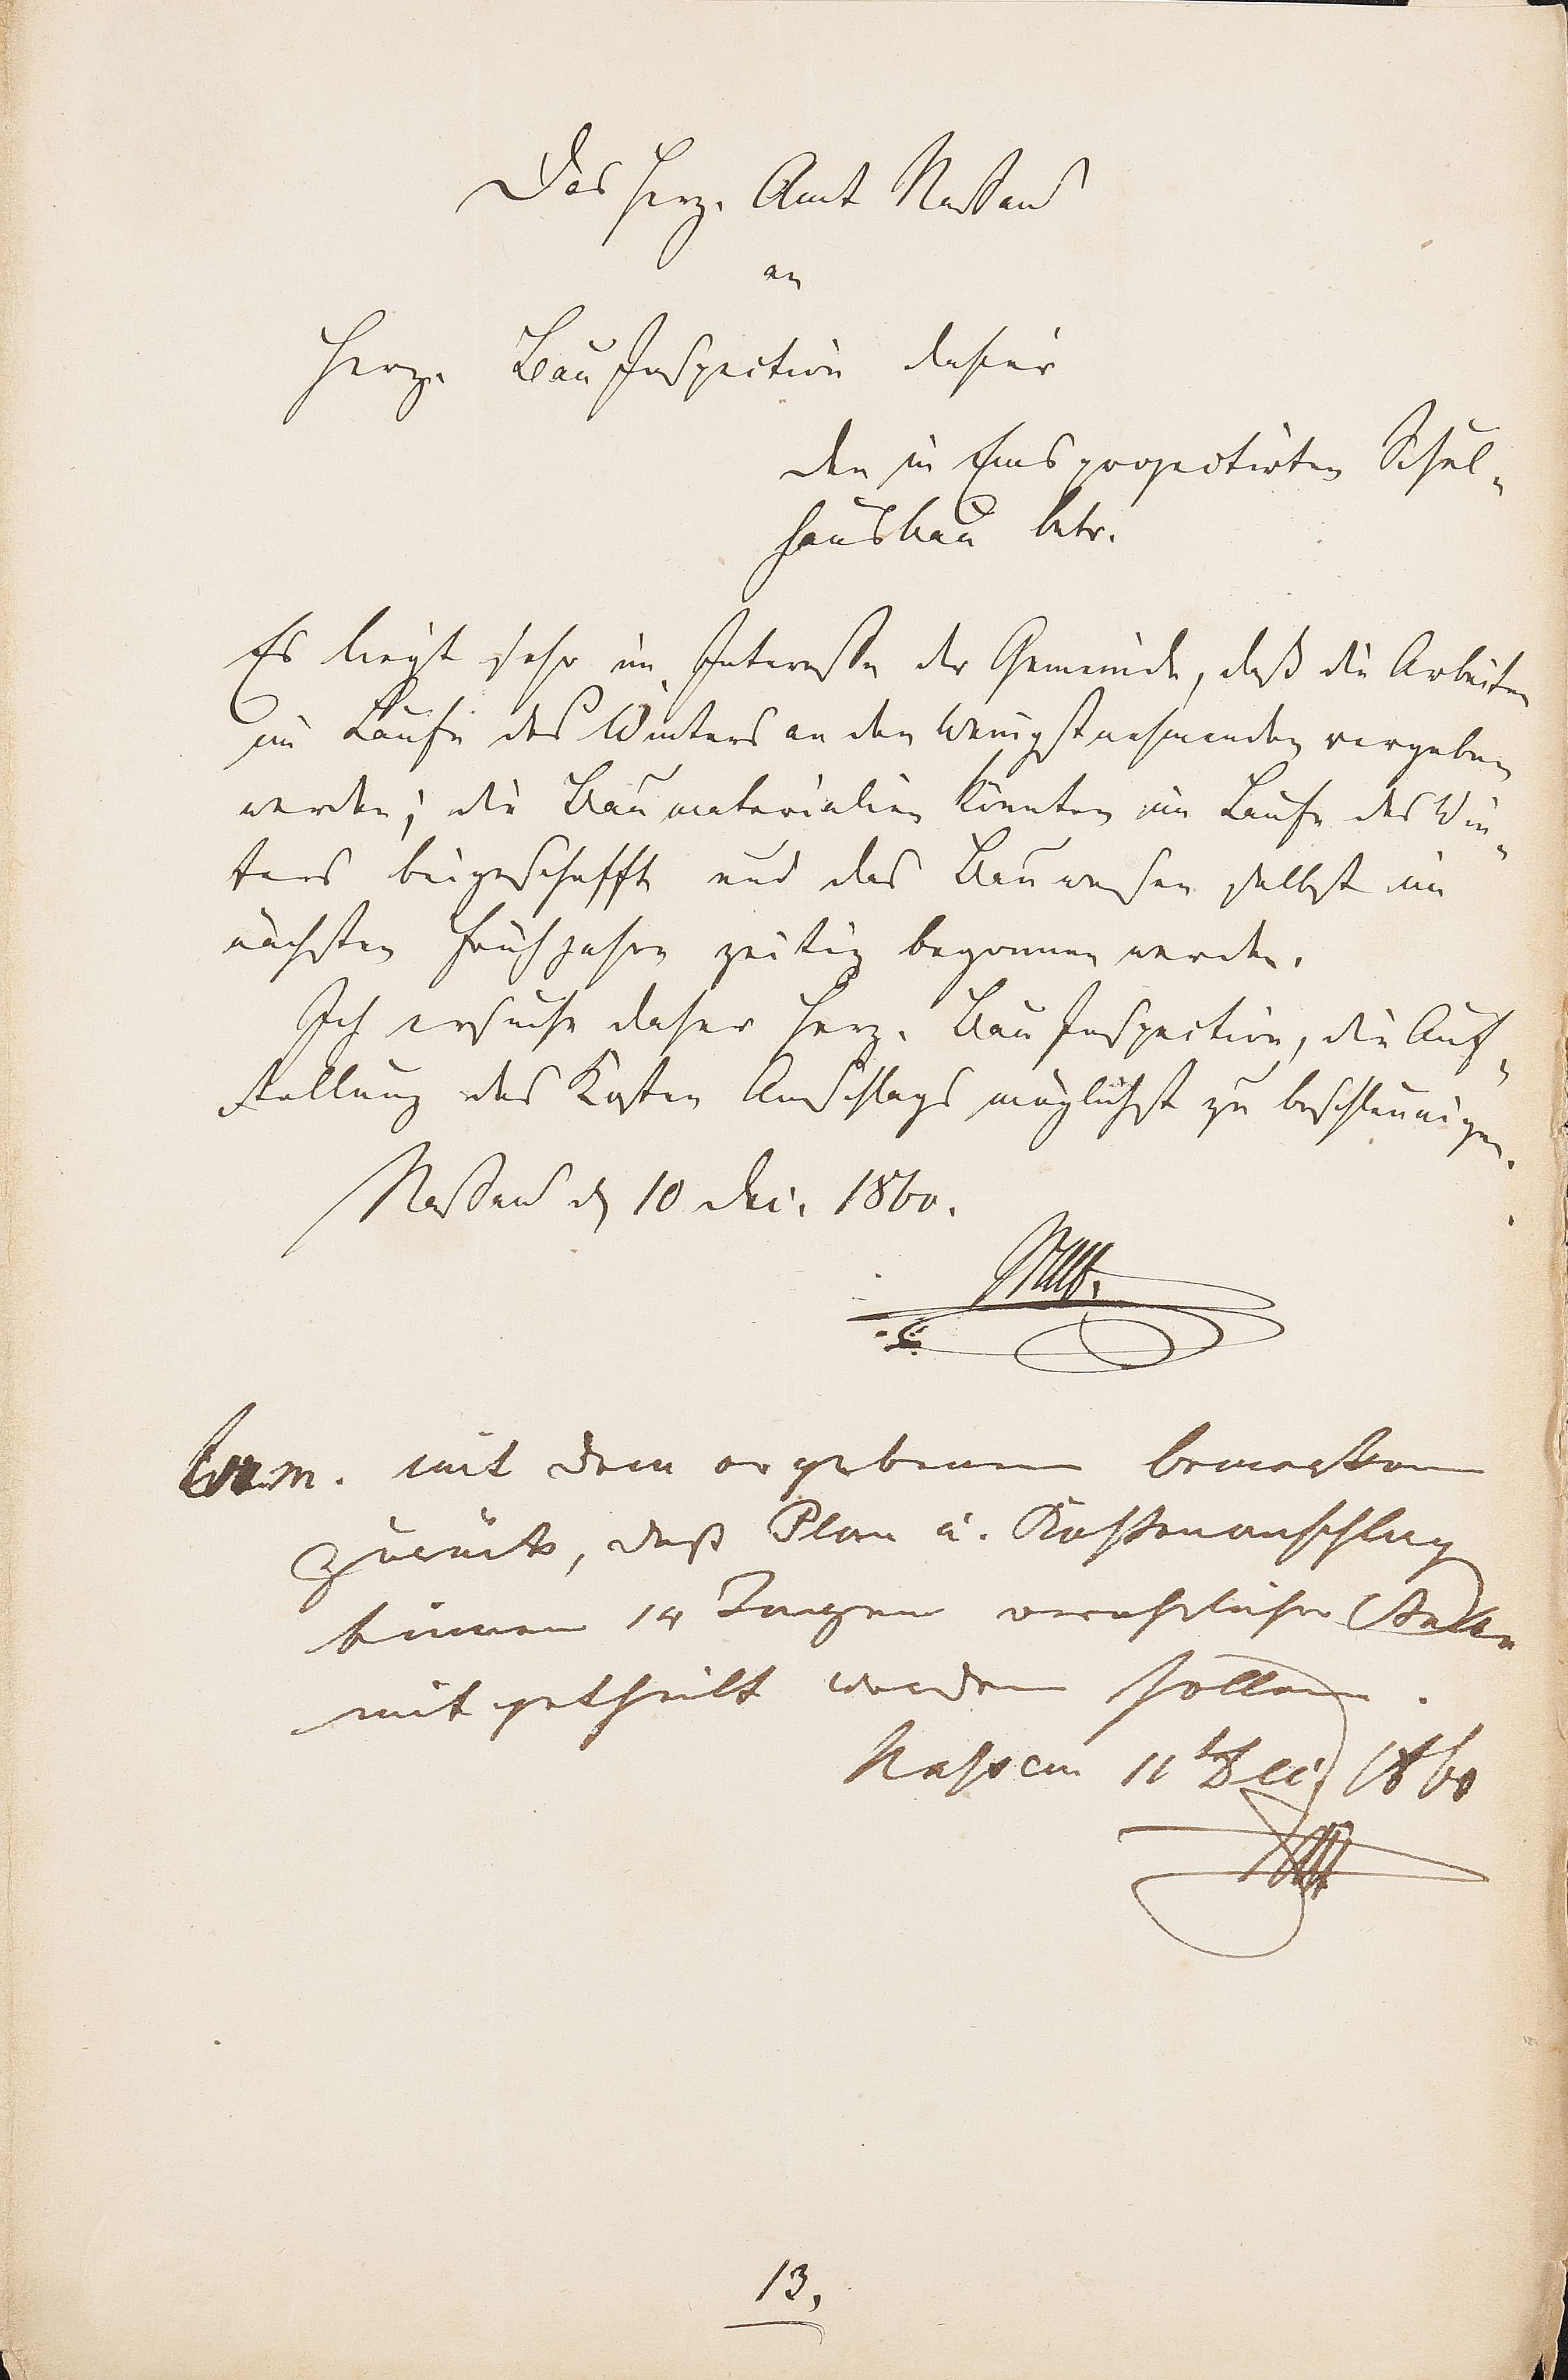 Das Herz. Amt Nassau
an
Herz. Bau Inspection dahier
den in Ems projectirten Schul-
hausbau betr.
Es liegt sehr im Interesse der Gemeinde, daß die Arbeiten
im Laufe des Winters an den Wenigstnehmenden vergeben
werden; die Baumaterialien könnten im Laufe des Win-
ters beigeschafft und das Bauwesen selbst im
nächsten Frühjahre zeitig begonnen werden.
Ich ersuche daher Herz. Bau Inspection, die Auf-
stellung des Kosten Anschlags möglichst zu beschleunigen.
Nassau d 10 Dec. 1860.
mit dem ergebenen bemerken
zurück, daß Plan u. Kostenanschlag
binnen 14 Tagen verehrlicher Stelle
mitgetheilt werden sollen.
Nassau 11t Dec 1860
13.